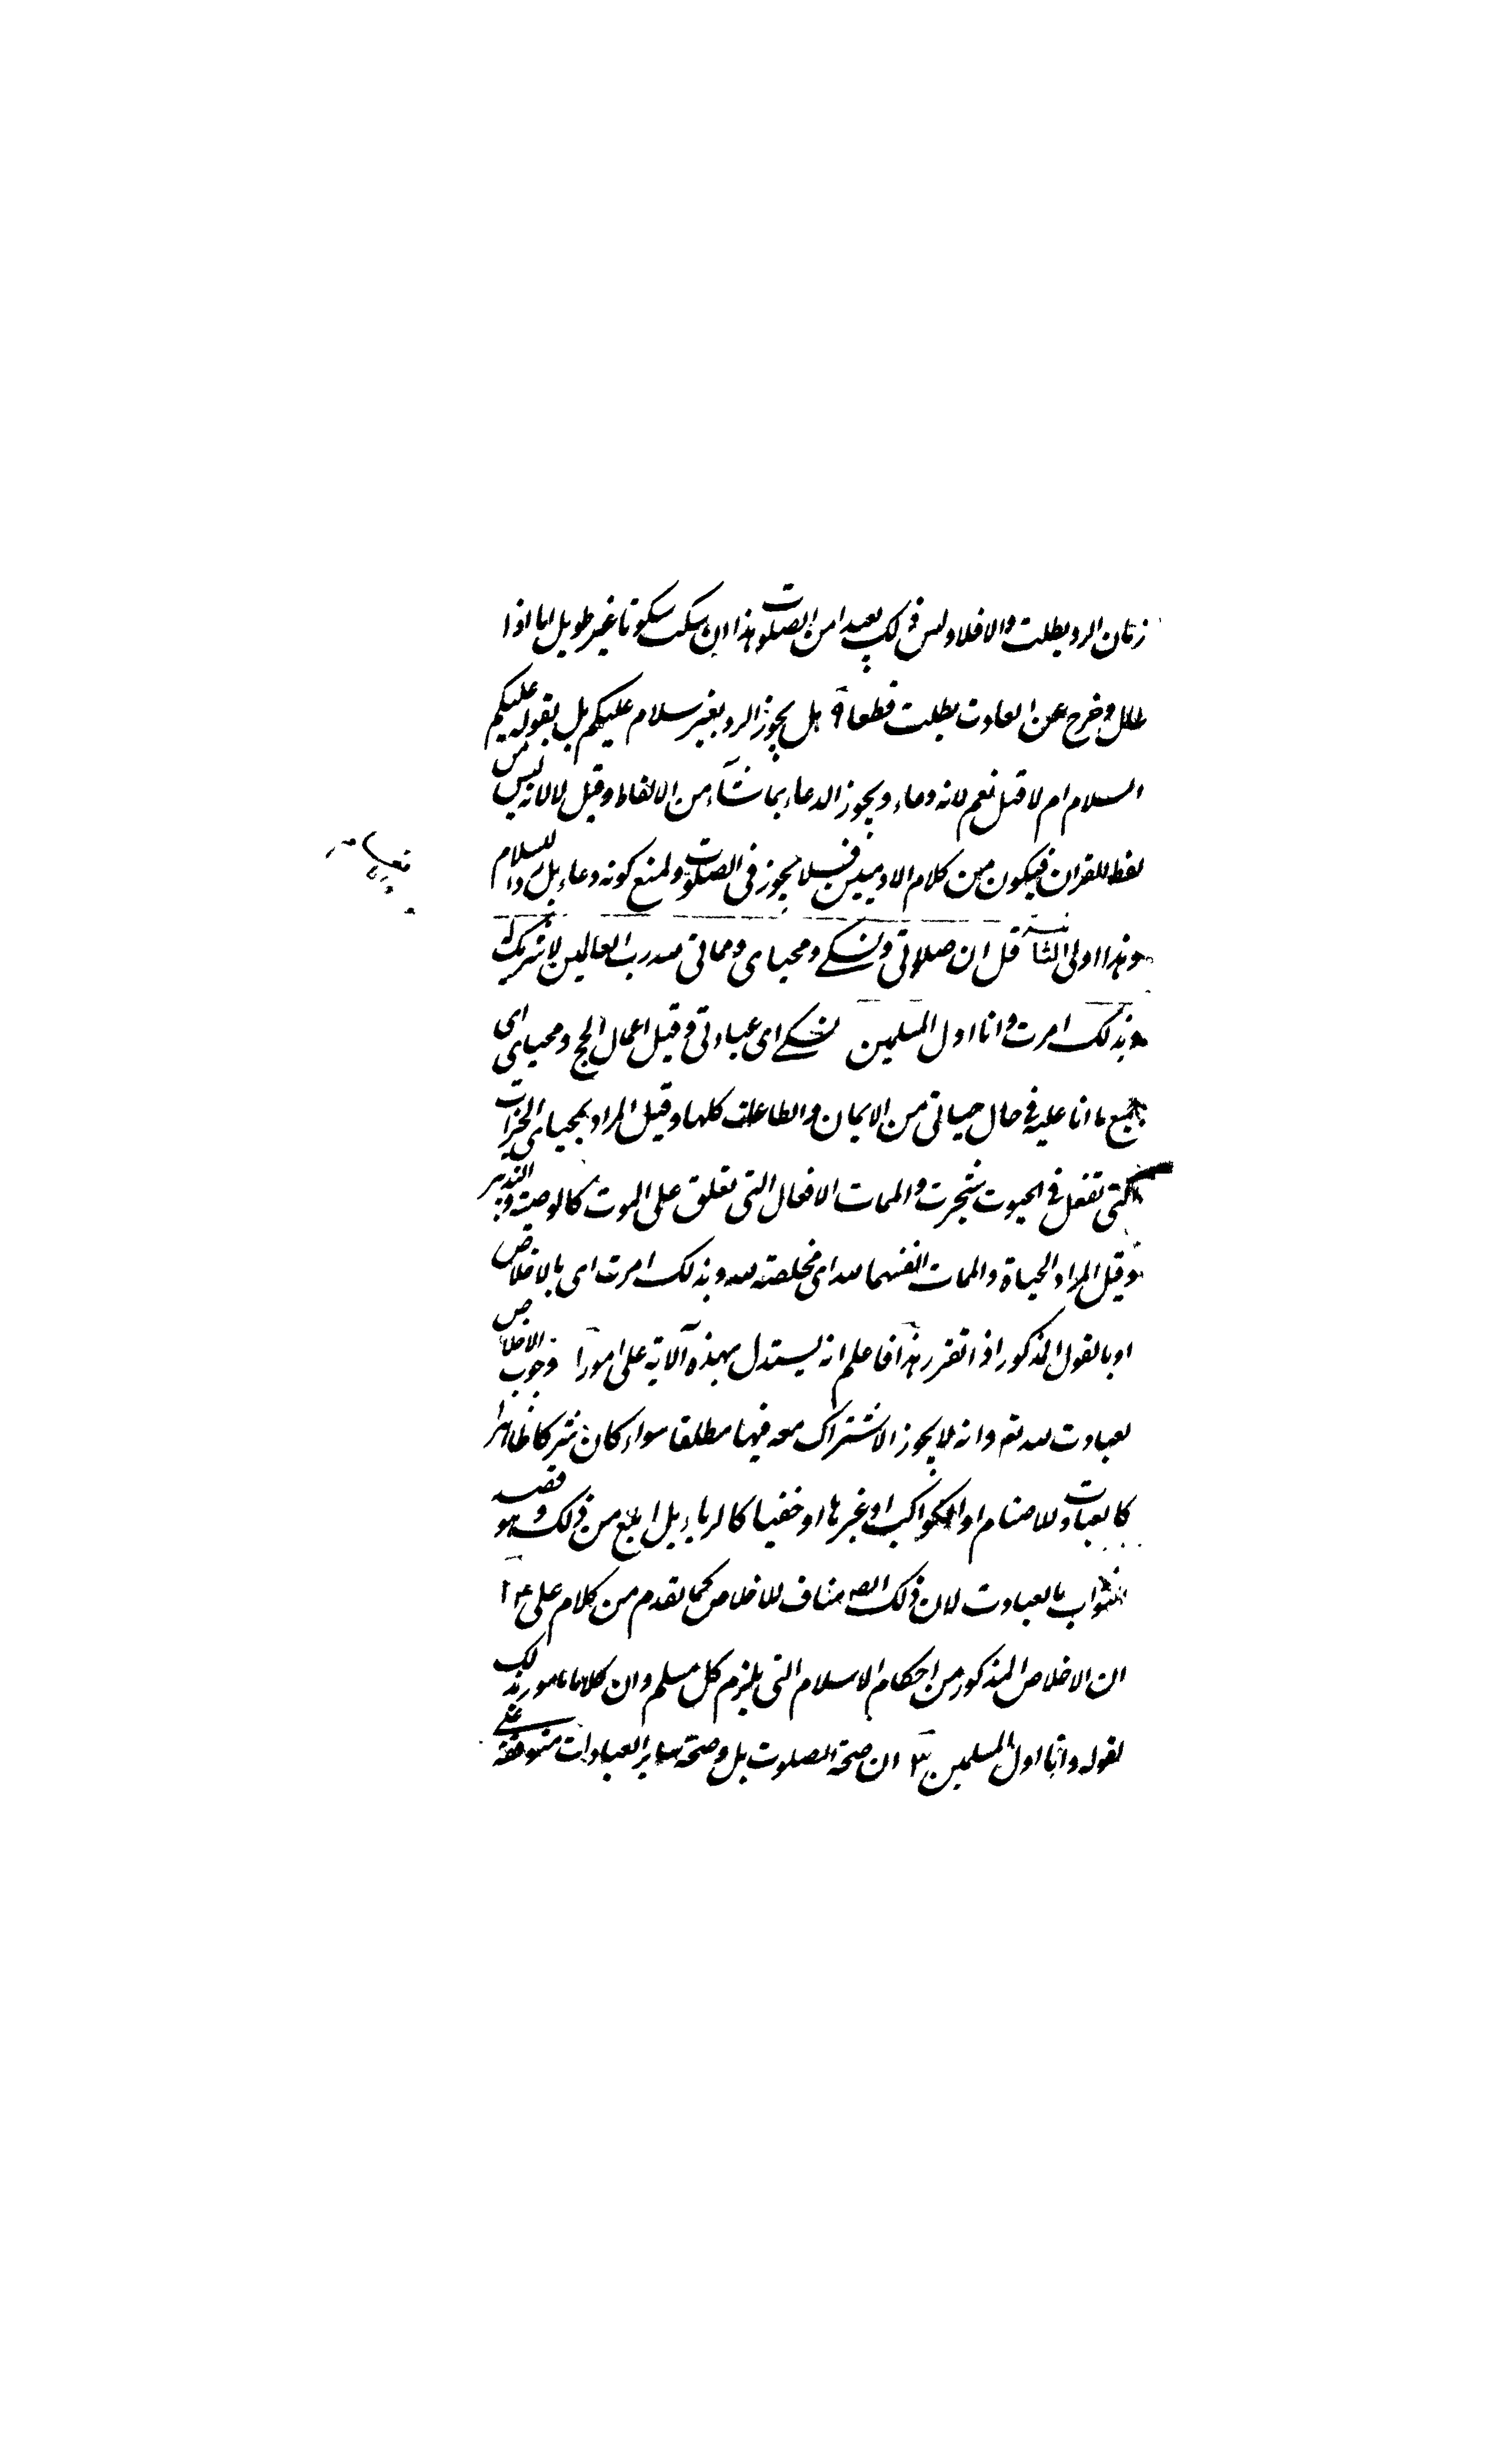 زمان الرد بطلت والا فلا وليس ذلك بعيدا من الصلوت هذا ان سكت سكوتا غير طويل اما اذا
طال وخرج عن العادت بطلت قطعا ٩ هل يجوز الرد بغير سلام عليكم بل بقوله عليكم
السلام ام لا قيل نعم لانه دعاء ويجوز الدعاء بما شآء من الالفاظ وقيل لا لانه ليس من
لفظ القران فيكون من كلام الادميين فلا يجوز فى الصلوت ولمنع كونه دعاء بل رد السلام
وهذا اولى الثامنة قل ان صلاتى ونسكى ومحياى ومماتى لله رب العالمين لا شريك له
وبذلك امرت وانا اول المسلمين نسكى اى عبادتى وقيل اعمال الحج ومحياى اى
جميع ما انا عليه فى حال حياتى من الايمان والطاعات كلها وقيل المراد بمحياى الخيرات
التى تفعل فى الحيوت منجزت والممات الافعال التى تعلق على الموت كالوصية والتدبير
وقيل المراد الحياة والممات انفسهما لله اى مخلصة لله وبذلك امرت اى بالاخلاص
او بالقول المذكور اذا تقرر هذا فاعلم انه يستدل بهذه الآية على امور ا وجوب الاخلاص
بعبادت لله تع وانه لا يجوز الاشتراك معه فيها مطلقا سواء كان شركا ظاهرا
كالعبادت للاصنام او الكواكب او غيرها او خفيا كالرياء بل ابلغ من ذلك وهو قصد
الثواب بالعبادت لان ذلك ايضا مناف للاخلاص كما تقدم من كلام على ع ٢
ان الاخلاص المذكور من احكام الاسلام التى يلزم كل مسلم وان كلا مامور بذلك
لقوله وانا اول المسلمين ٣ ان صحة الصلوت بل وصحة ساير العبادات متوقفة على